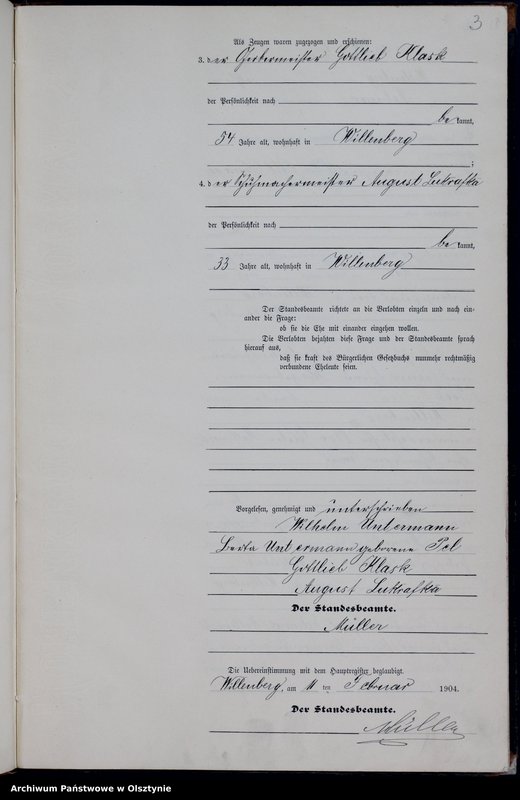 3
Als Zeugen waren zugezogen und erschienen:
3. der Gerbermeister Gottlieb Klask
der Persönlichkeit nach
be kannt,
54 Jahre alt, wohnhaft in Willenberg
;
4. der Schuhmachermeister August Lukrafka
der Persönlichkeit nach
be kannt,
33 Jahre alt, wohnhaft in Willenberg
Der Standesbeamte richtete an die Verlobten einzeln und nach ein-
ander die Frage:
ob sie die Ehe mit einander eingehen wollen.
Die Verlobten bejahten diese Frage und der Standesbeamte sprach
hierauf aus,
daß sie kraft des Bürgerlichen Gesetzbuchs nunmehr rechtmäßig
verbundene Eheleute seien.
Vorgelesen, genehmigt und unterschrieben
Wilhelm Untermann
Berta Untermann geborene Pel
Gottlieb Klask
August Lukrafka
Der Standesbeamte.
Müller
Die Uebereinstimmung mit dem Hauptregister beglaubigt.
Willenberg, am 11 ten Februar 1904.
Der Standesbeamte.
Müller
Archiwum Państwowe w Olsztynie